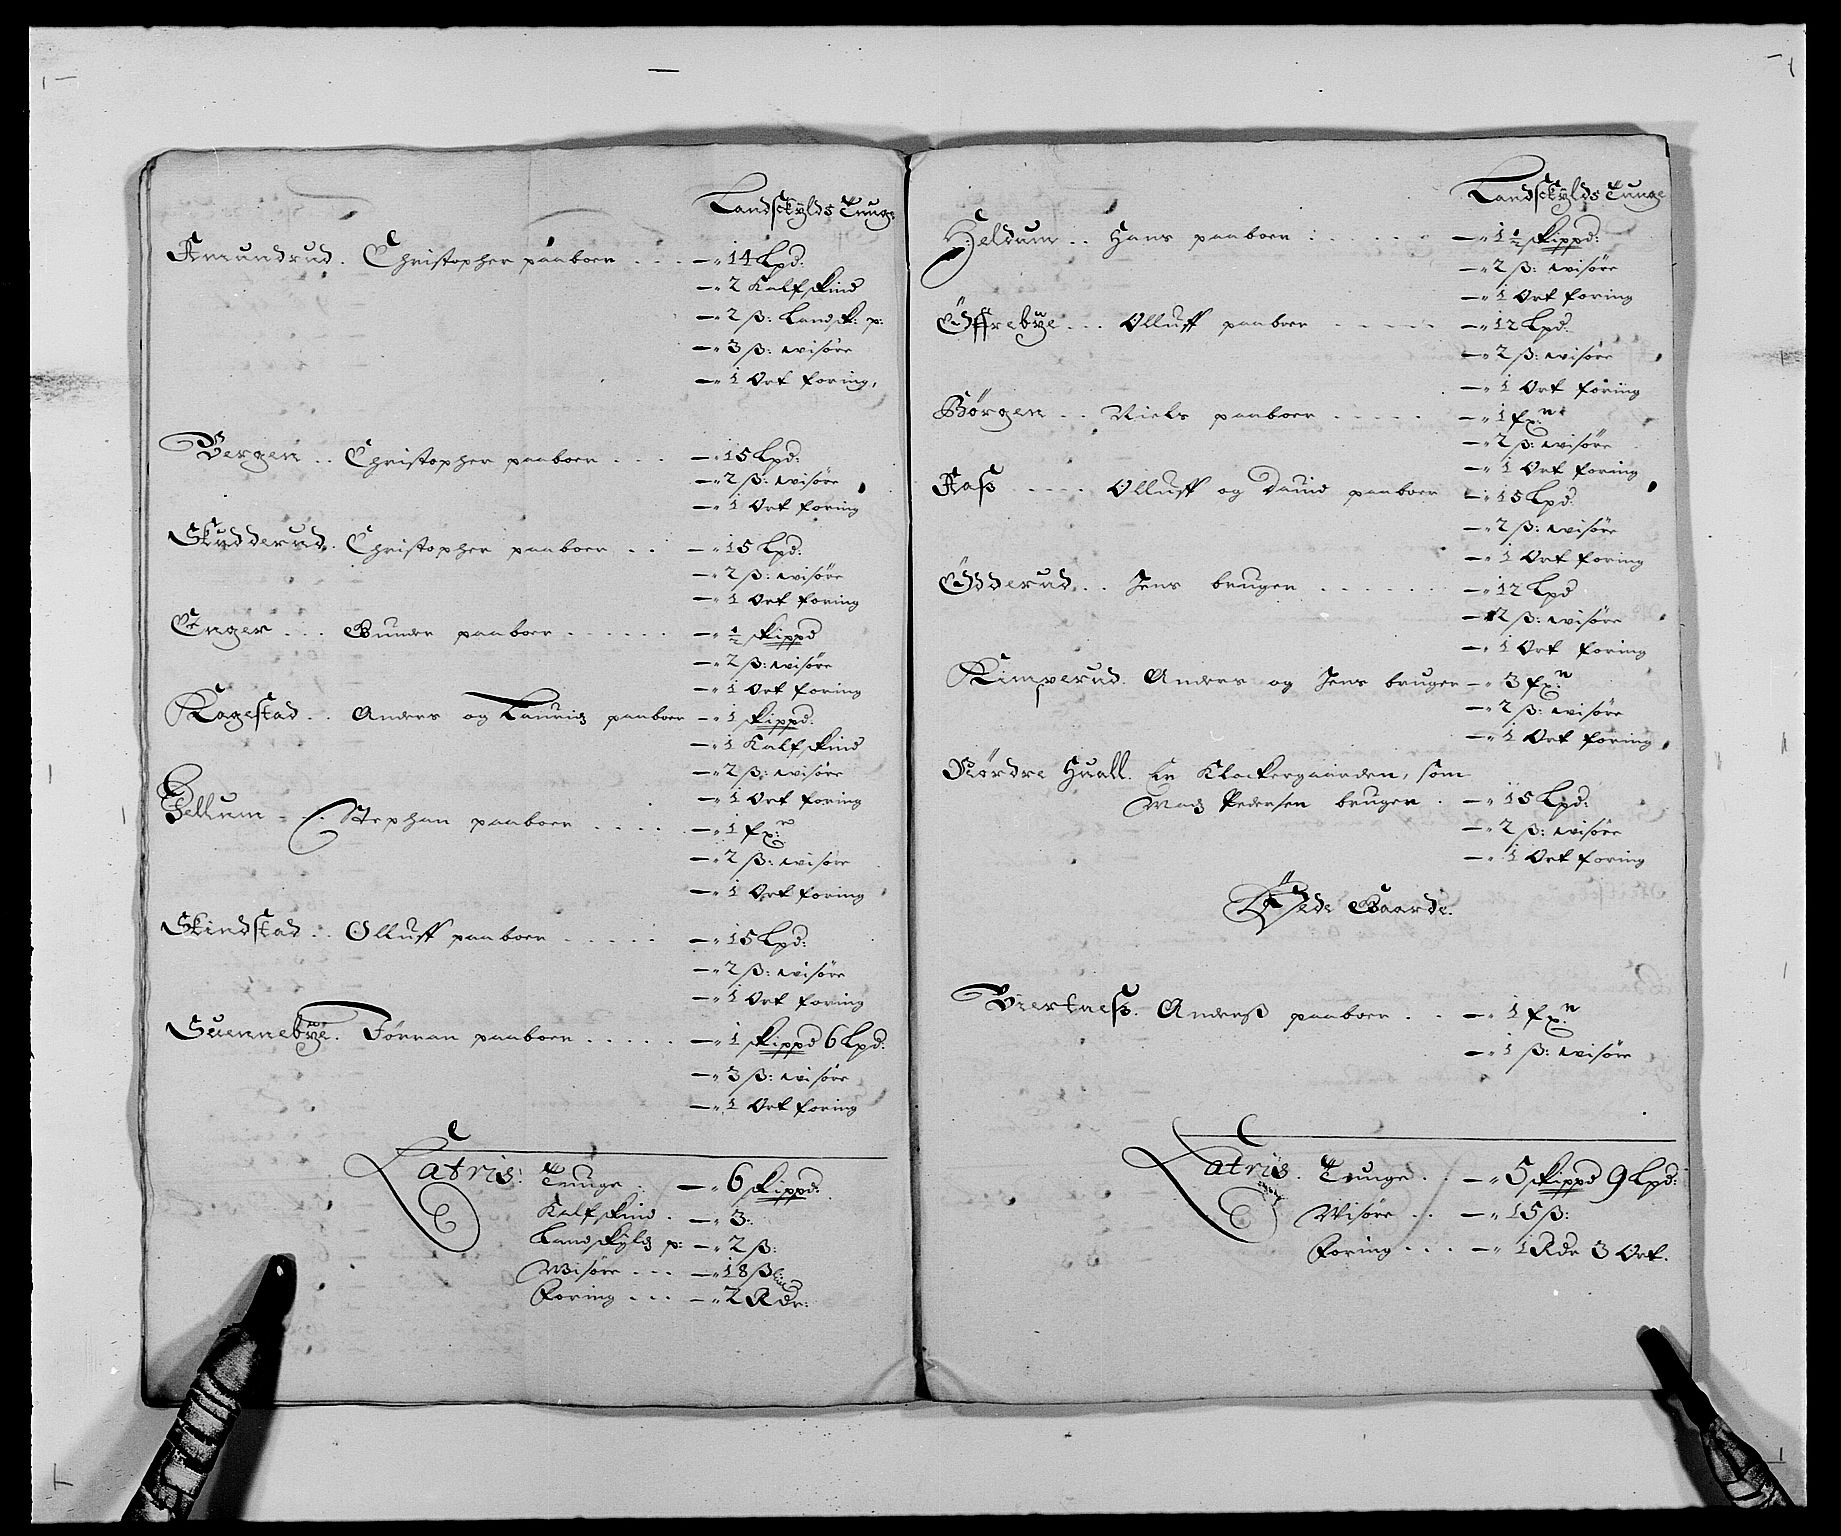 Landschÿlds Tunge
Amundrud . Christopher paaboer . . . — 14 Lpd:
— 2 Kalfskind
— 2 ß: Landsk: p:
— 3 ß: wisøre
— 1 Ort foring,
Bergen . . Christopher paaboer . . . — 15 Lpd:
— 2 ß: wisøre
— 1 Ort foring
Skudderud . Christopher paaboer . . — 15 Lpd:
— 2 ß: wisøre
— 1 Ort foring
Enger . . . Gunder paaboer . . . . . . — ½ skippd
— 2 ß: wisøre
— 1 Ort foring
Kogestad . . Anders og Lauridz paaboer — 1 skippd:
— 1 Kalfskind
— 2 ß: wisøre
— 1 Ort foring
Hellum . . . Stephan paaboer . . . . . — 1 fx:r
— 2 ß: wisøre
— 1 Ort foring
Skindstad . . Olluff paaboer . . . . . — 15 Lpd:
— 2 ß: wisøre
— 1 Ort foring
Suennebÿe . Jørran paaboer . . . . . — 1 skippd 6 Lpd:
— 3 ß: wisøre
— 1 Ort foring
Latris: Tunge . — 6 skippd:
Kalfskind . — 3:
Landskÿlds p: — 2 ß:
Wisøre . . . — 18 ß
Foring . . . — 2 Rdr:
Landschÿlds Tunge
Heldum . . Hans paaboer . . . . . . — 1½ skippd:
— 2 ß: wisøre
— 1 Ort foring
Offrebye . . . Olluff paaboer . . . . . — 12 Lpd:
— 2 ß: wisøre
— 1 Ort foring
Børgen . . Niels paaboer . . . . . — 1 fx:r
— 2 ß: wisøre
— 1 Ort foring
Aaß . . . . Olluff og Dauid paaboer — 15 Lpd:
— 2 ß: wisøre
— 1 Ort foring
Odderud . . . Jens bruger . . . . . . . — 12 Lpd
— 2 ß: wisøre
— 1 Ort foring
Kimperud . Anders og Jens bruger — 3 fx:r
— 2 ß: wisøre
— 1 Ort foring,
Nørdre Huall . Er Klockergaarden, som
Madz Pedersen bruger . — 15 Lpd:
— 2 ß: wisøre
— 1 Ort foring
Øde Gaarde.
Biertneß . Anderß paaboer . . — 1 fx:r
— 1 ß: wisøre
Latris . Tunge . . — 5 skippd 9 Lpd:
Wisøre . . — 15 ß:
Foring . . . — 1 Rdr 3 Ort.